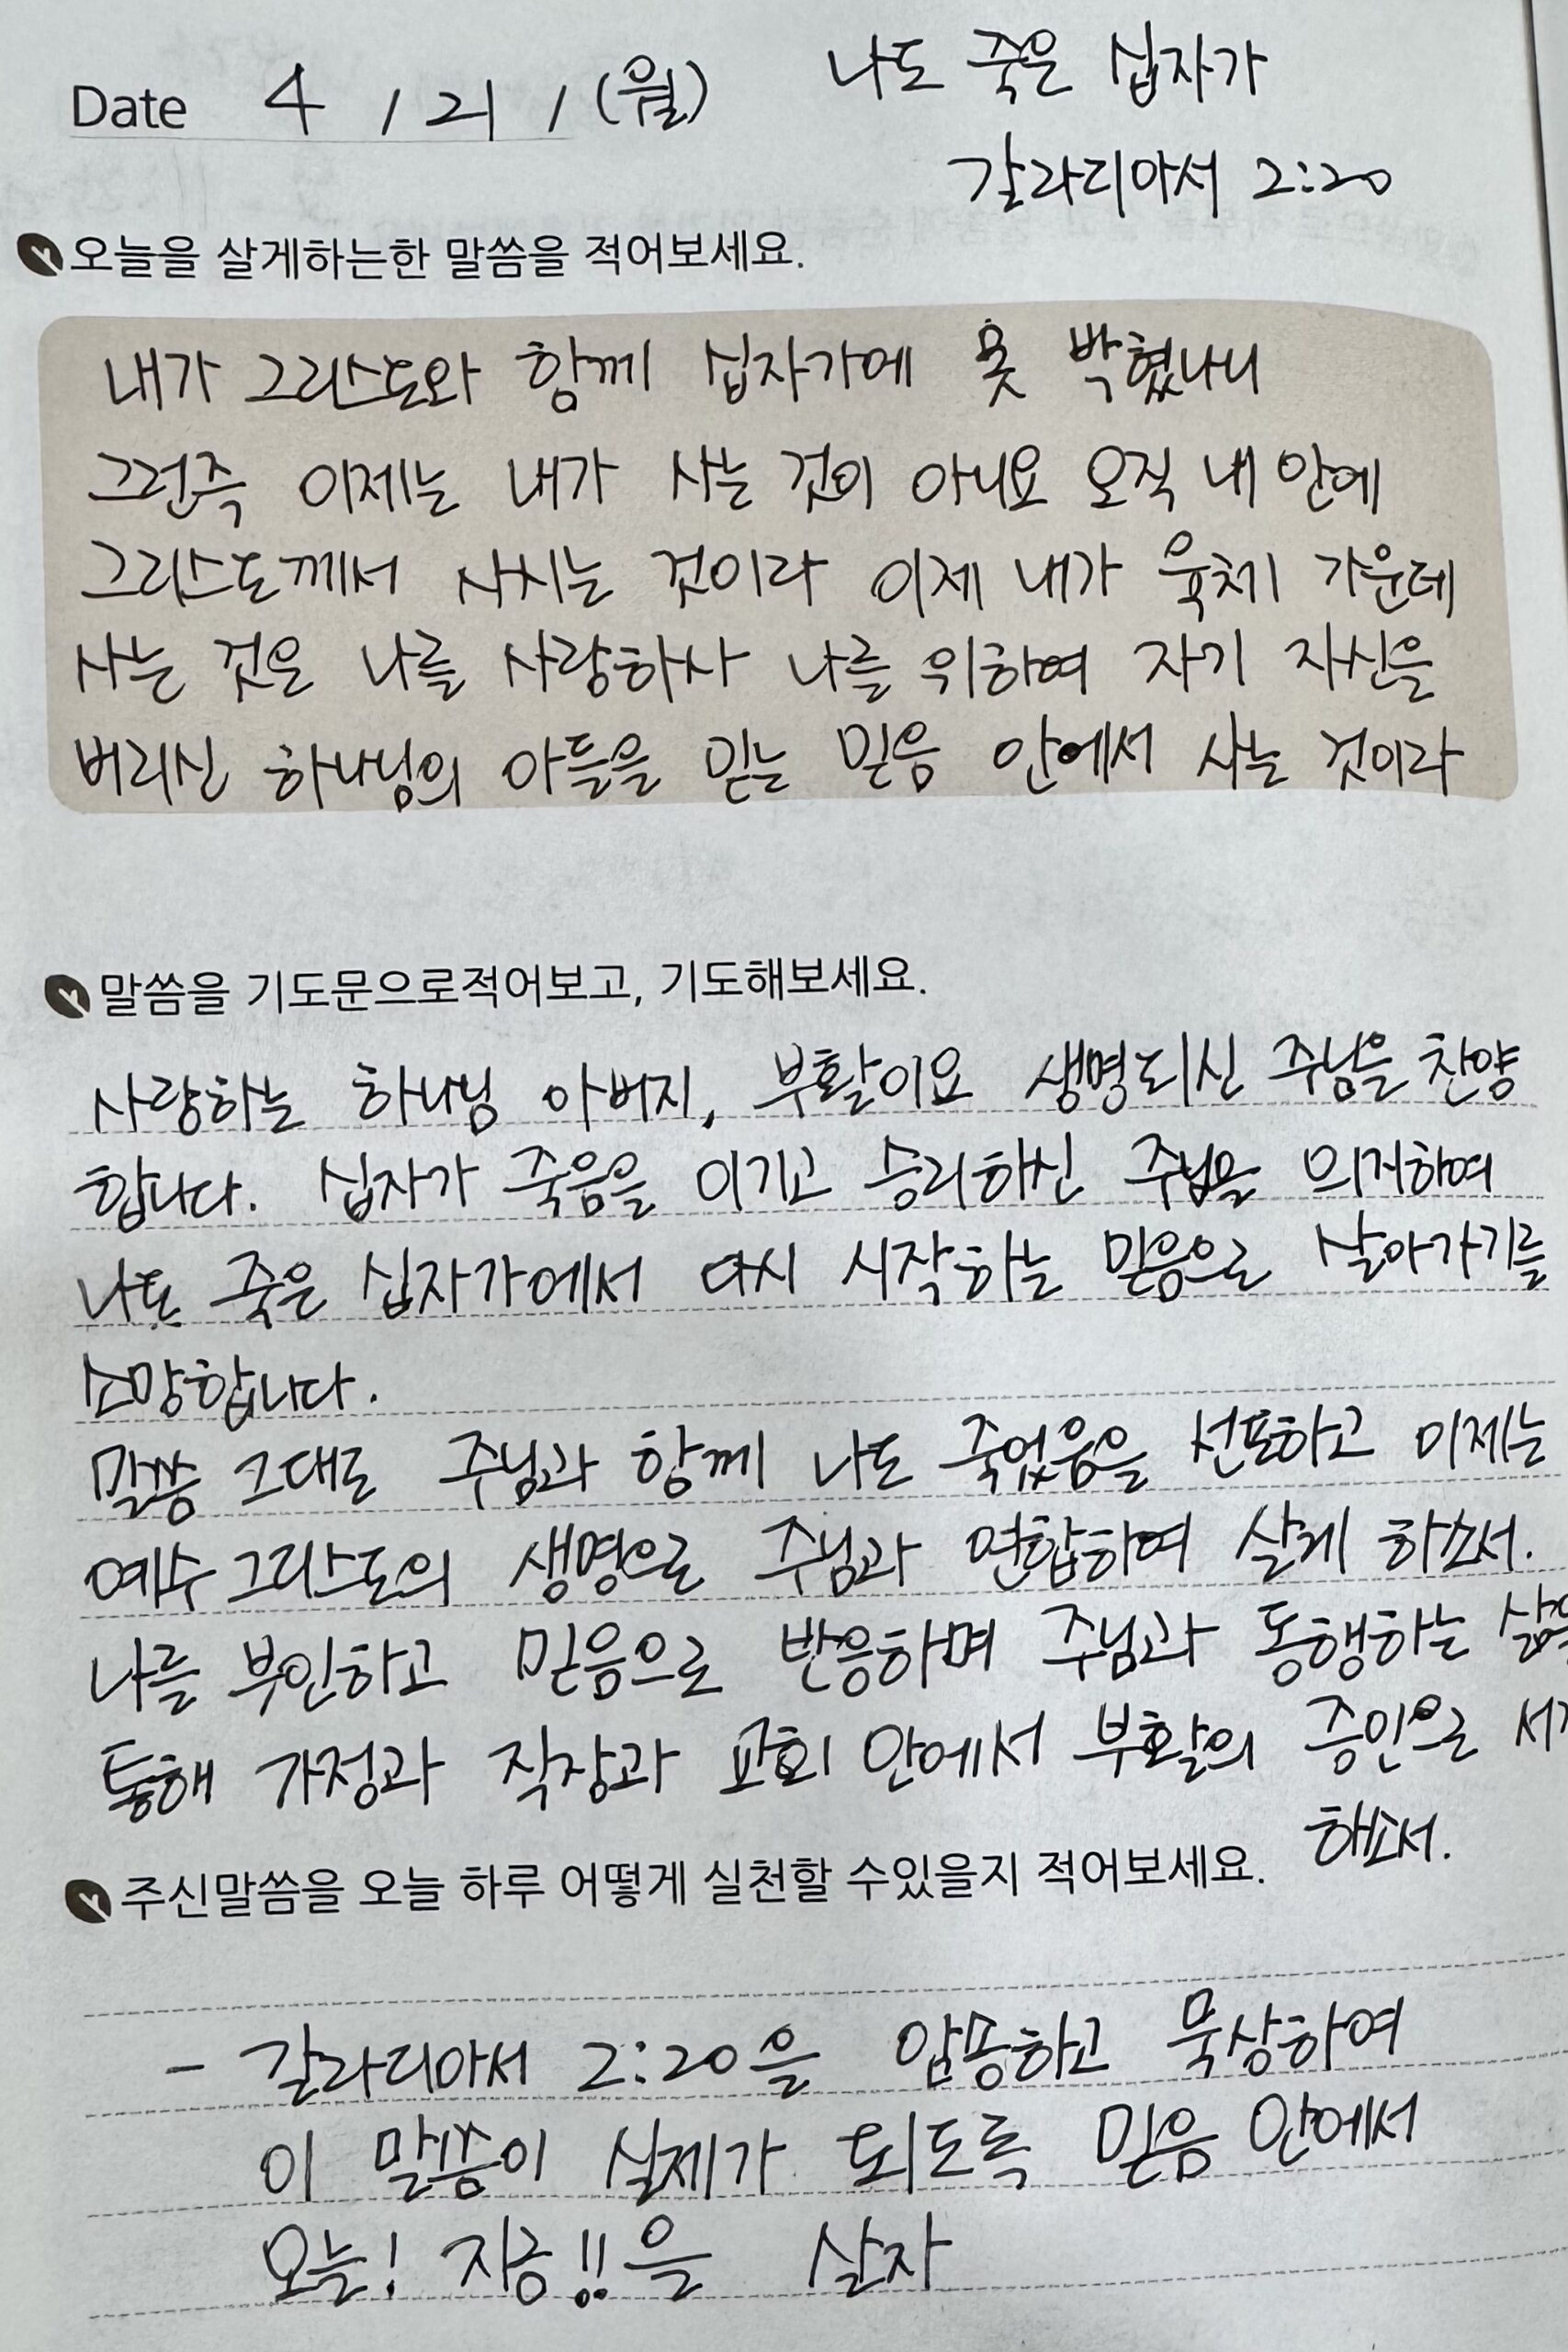 Date 4 / 21 / (월) 나도 죽은 십자가
갈라디아서 2:20
오늘을 살게하는한 말씀을 적어보세요.
내가 그리스도와 함께 십자가에 못 박혔나니
그런즉 이제는 내가 사는 것이 아니요 오직 내 안에
그리스도께서 사시는 것이라 이제 내가 육체 가운데
사는 것은 나를 사랑하사 나를 위하여 자기 자신을
버리신 하나님의 아들을 믿는 믿음 안에서 사는 것이라
말씀을 기도문으로적어보고, 기도해보세요.
사랑하는 하나님 아버지, 부활이요 생명되신 주님을 찬양
합니다. 십자가 죽음을 이기고 승리하신 주님을 의거하여
나도 죽은 십자가에서 다시 시작하는 믿음으로 살아가기를
소망합니다.
말씀 그대로 주님과 함께 나도 죽었음을 선포하고 이제는
예수 그리스도의 생명으로 주님과 연합하여 살게 하소서.
나를 부인하고 믿음으로 반응하며 주님과 동행하는
통해 가정과 직장과 교회 안에서 부활의 증인으로
해소서.
주신말씀을 오늘 하루 어떻게 실천할 수있을지 적어보세요.
- 갈라디아서 2:20을 암송하고 묵상하여
이 말씀이 실제가 되도록 믿음 안에서
오늘! 지금!!을 살자